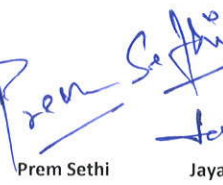 Prem Sethi
Prem Sethi Jaya